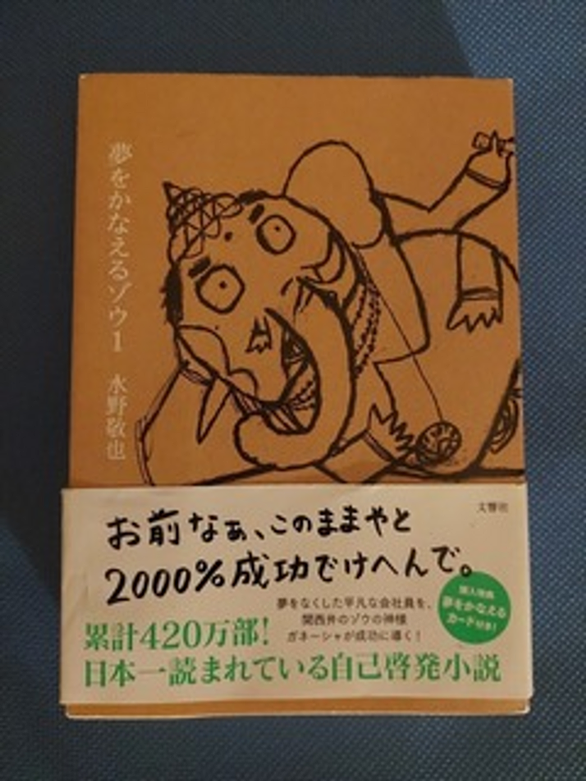 夢をかなえるゾウ1
水野敬也
文響社
お前なぁ、このままやと
2000%成功でけへんで。
夢をなくした平凡な会社員を、
関西弁のゾウの神様
ガネーシャが成功に導く!
購入特典
夢をかなえる
カード付き!
累計420万部!
日本一読まれている自己啓発小説